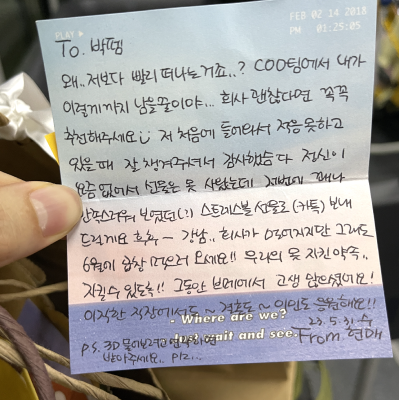 PLAY
FEB 02 14 2018
PM 01:25:05
To. 박뎀
왜.. 저보다 빨리 떠나는거죠..? COO팀에서 내가
이렇게까지 남을줄이야... 회사 괜찮다면 꼭꼭
추천해주세요 저 처음에 들어와서 적응못하고
있을때 잘 챙겨주셔서 감사했습니다 정신이
요즘 없어서 선물은 못 샀는데 저번에
보였던(?) 스트레스볼 선물로 (카톡) 보내
드릴게요 흐흑~ 강남.. 회사가 멀어지지만 그래도
6월에 곱창 먹으러 오세요!! 우리의 못 지킨 약속..
지킬수 있도록!! 그동안 브메에서 고생 많으셨어요!
이직한 직장에서도~ 결혼도~ 응원해요!!
- Where are we?
wait and see
23. 5. 31. 수
From 현대
P.S. 3D 물어보려고 연락하면
받아주세요.. plz...